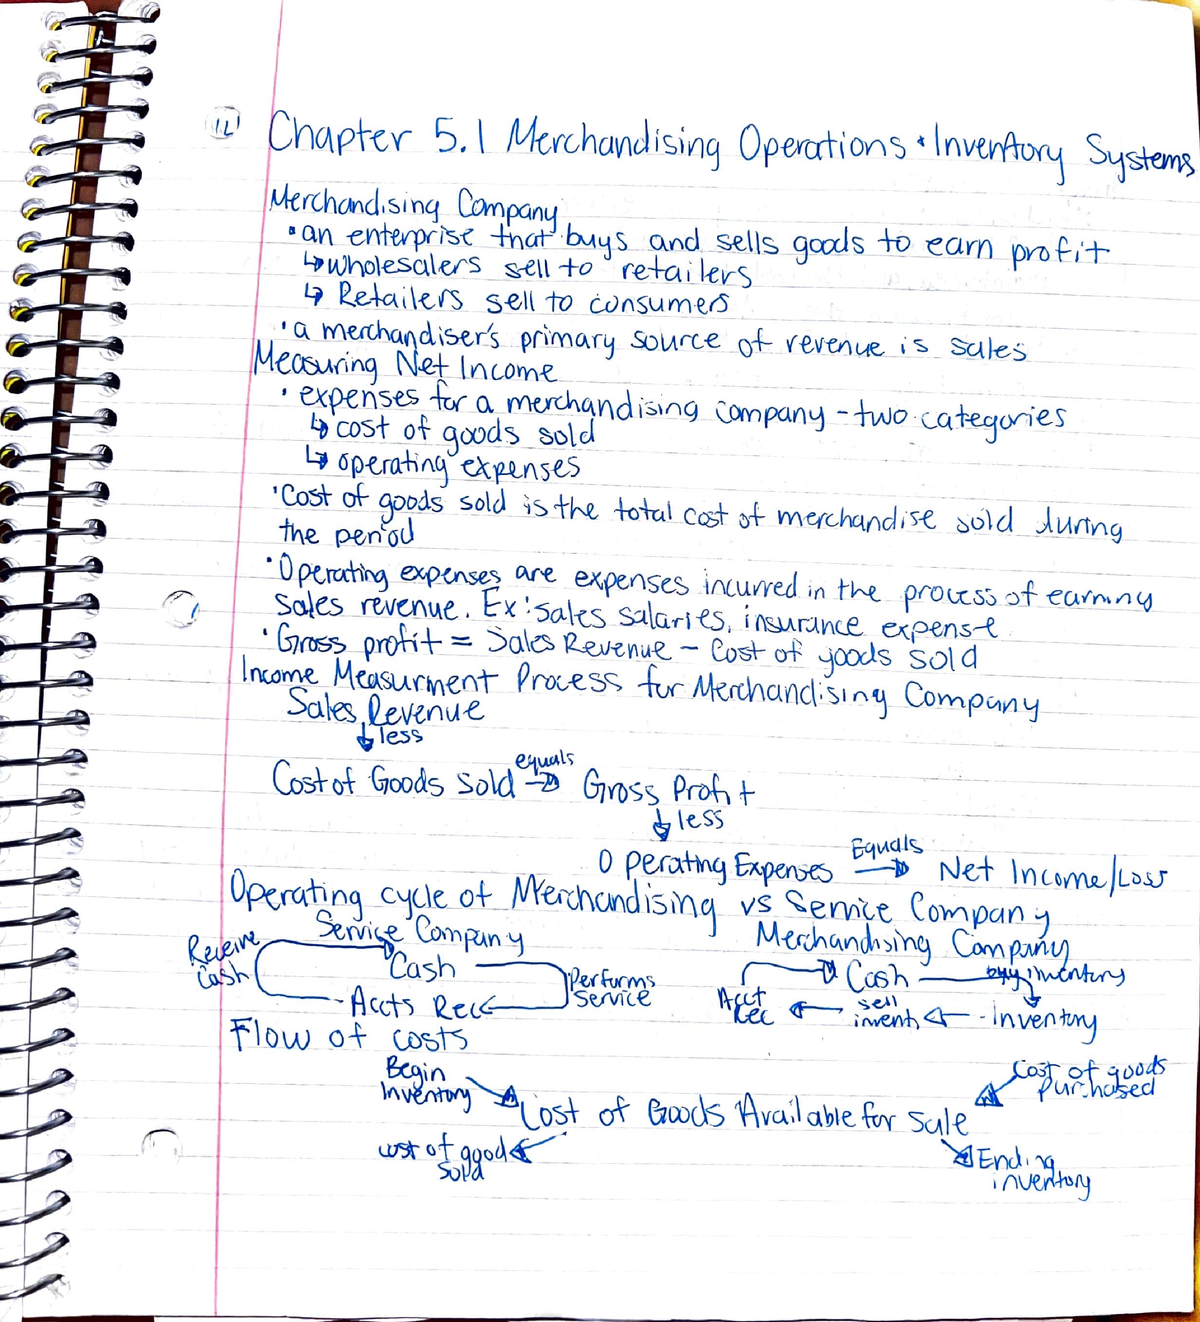 12
Chapter 5.1 Merchandising Operations + Inventory Systems
Merchandising Company
• an enterprise that buys and sells goods to earn profit
↳ wholesalers sell to retailers
↳ Retailers sell to consumers
• a merchandiser's primary source of revenue is sales
Measuring Net Income
• expenses for a merchandising company - two categories
↳ cost of goods sold
↳ operating expenses
• Cost of goods sold is the total cost of merchandise sold during
the period
• Operating expenses are expenses incurred in the process of earning
sales revenue. Ex: sales salaries, insurance expense
• Gross profit = Sales Revenue - Cost of goods sold
Income Measurment Process for Merchandising Company
Sales Revenue
↓ less
Cost of Goods Sold equals → Gross Profit
↓ less
Operating Expenses Equals → Net Income/Loss
Operating cycle of Merchandising vs Service Company
Service Company
Merchandising Company
Receive Cash
Cash
Performs Service
Accts Rec
Cash
buy inventory
Inventory
sell invent
Acct Rec
Flow of costs
Begin Inventory
Cost of goods purchased
Cost of Goods Available for Sale
cost of good sold
Ending inventory